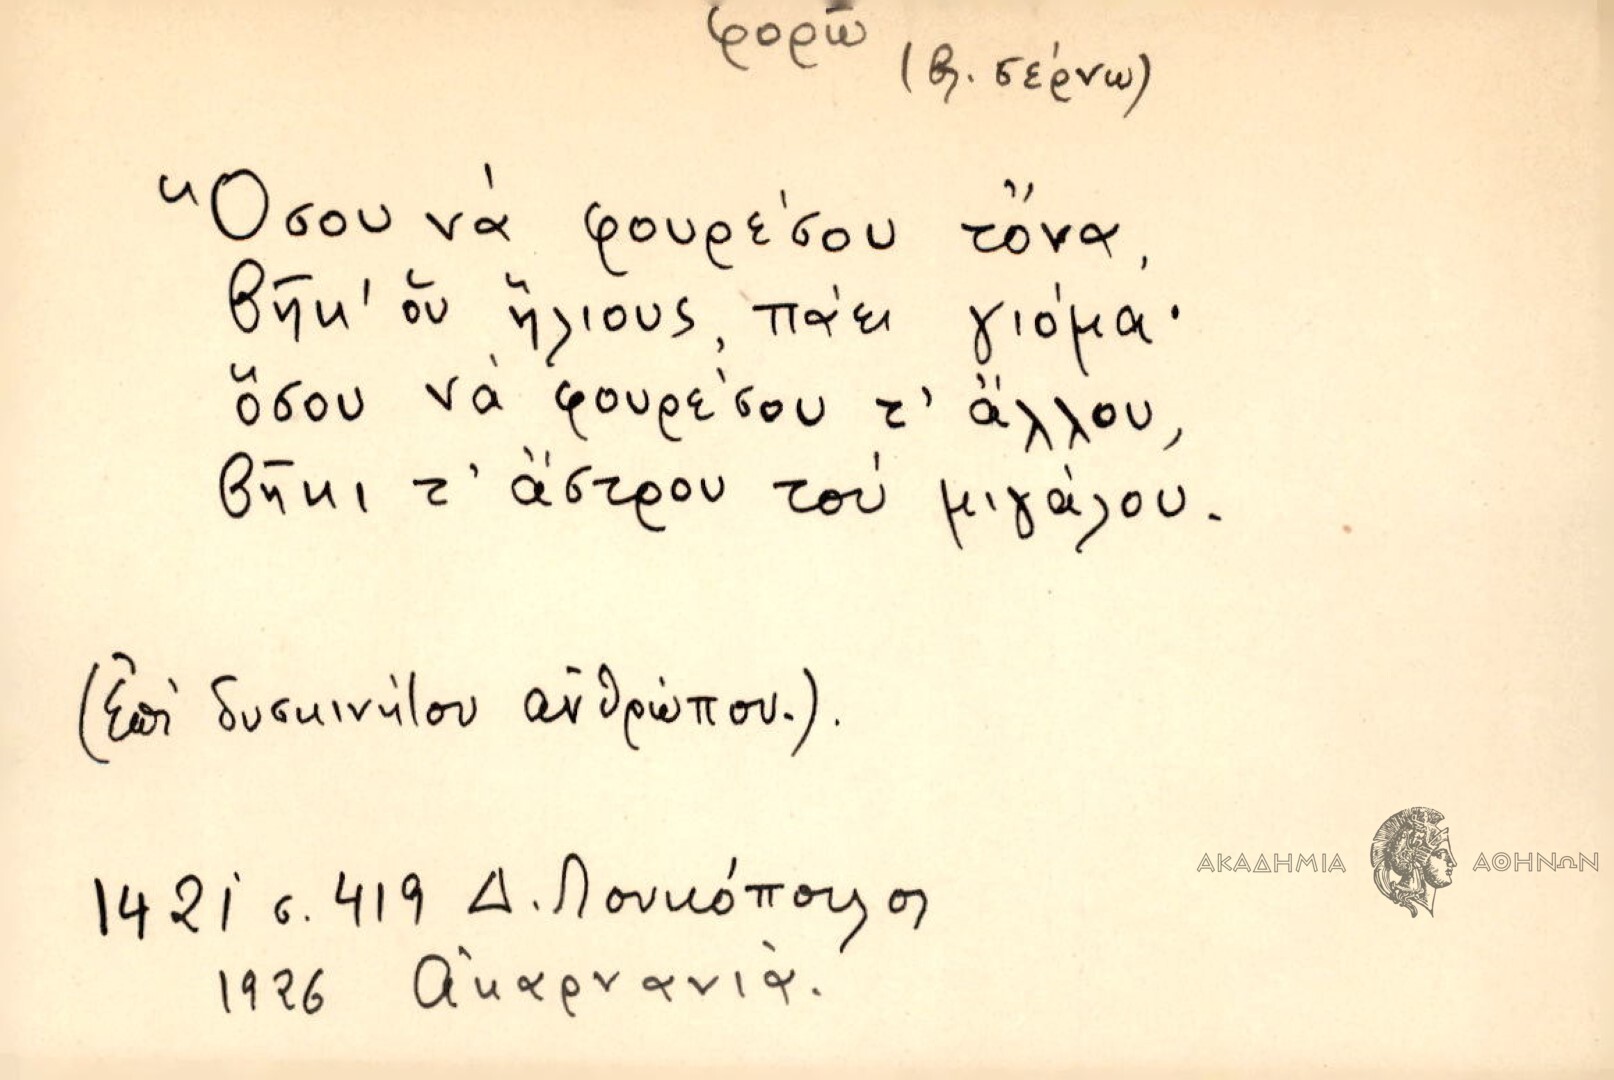 φορῶ
(βλ. σέρνω)
Ὅσου νὰ φουρέσου τὄνα,
βῆκ' οὗ ἥλιους, πάει γιόμα·
ὅσου νὰ φουρέσου τ' ἄλλου,
βῆκι τ' ἄστρου τοὺ μιγάλου.
(Ἐπὶ δυσκινήτου ἀνθρώπου.).
1421 σ. 419 Δ. Λουκόπουλος
1926 Ἀκαρνανία.
ΑΚΑΔΗΜΙΑ ΑΘΗΝΩΝ